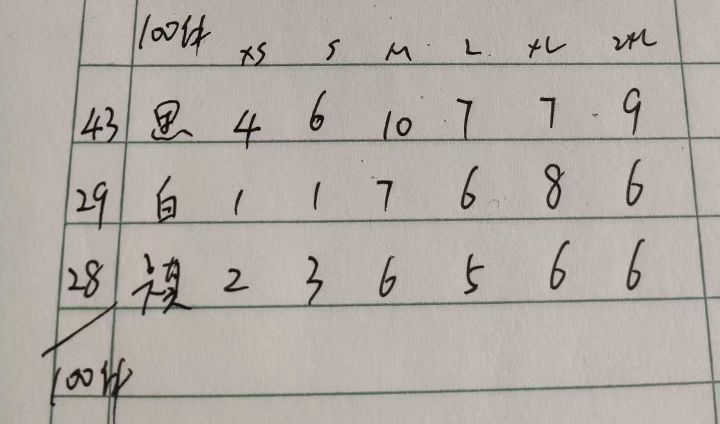 100件 XS S M L XL 2XL
43 黑 4 6 10 7 7 9
29 白 1 1 7 6 8 6
28 2 3 6 5 6 6
100件